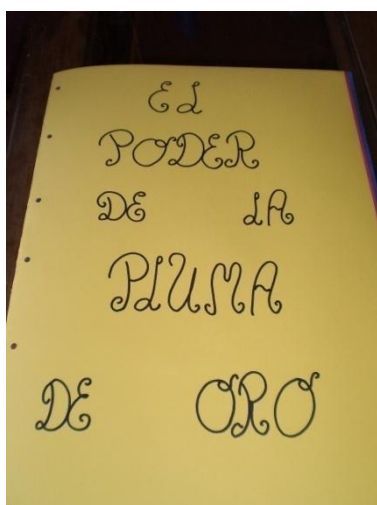 EL
PODER
DE LA
PLUMA
DE ORO